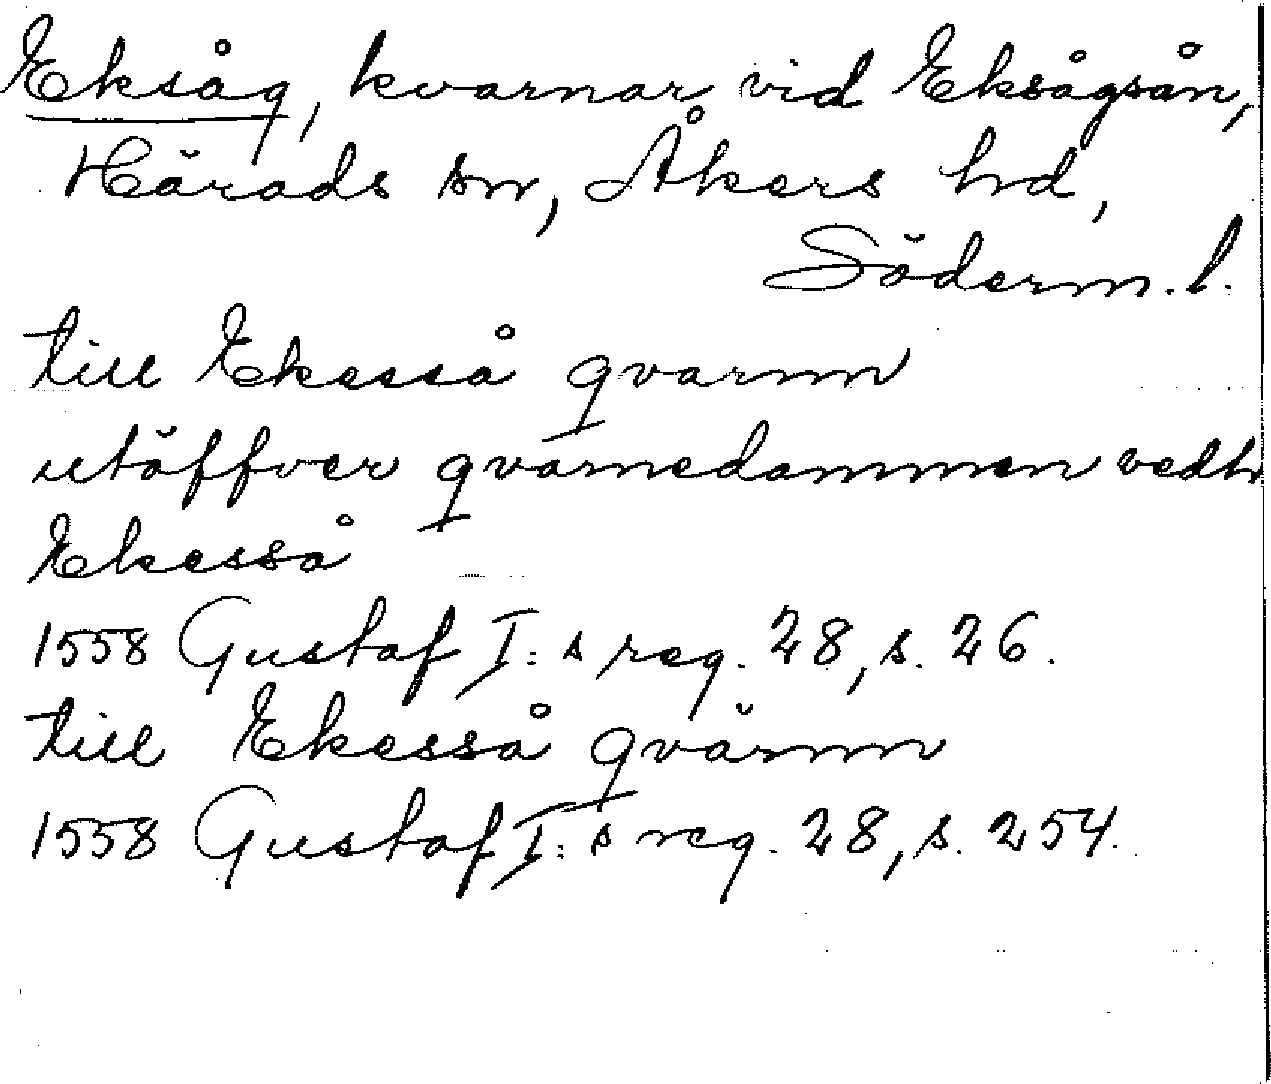 Eksåg, kvarnar vid Eksågsån,
Härads sn, Åkers hd,
Söderm. l.
till Ekesså qvarnn
utöffver qvarnedammen vedh
Ekesså
1558 Gustaf I:s reg. 28, s. 26.
till Ekesså qvärnn
1558 Gustaf I:s reg. 28, s. 254.